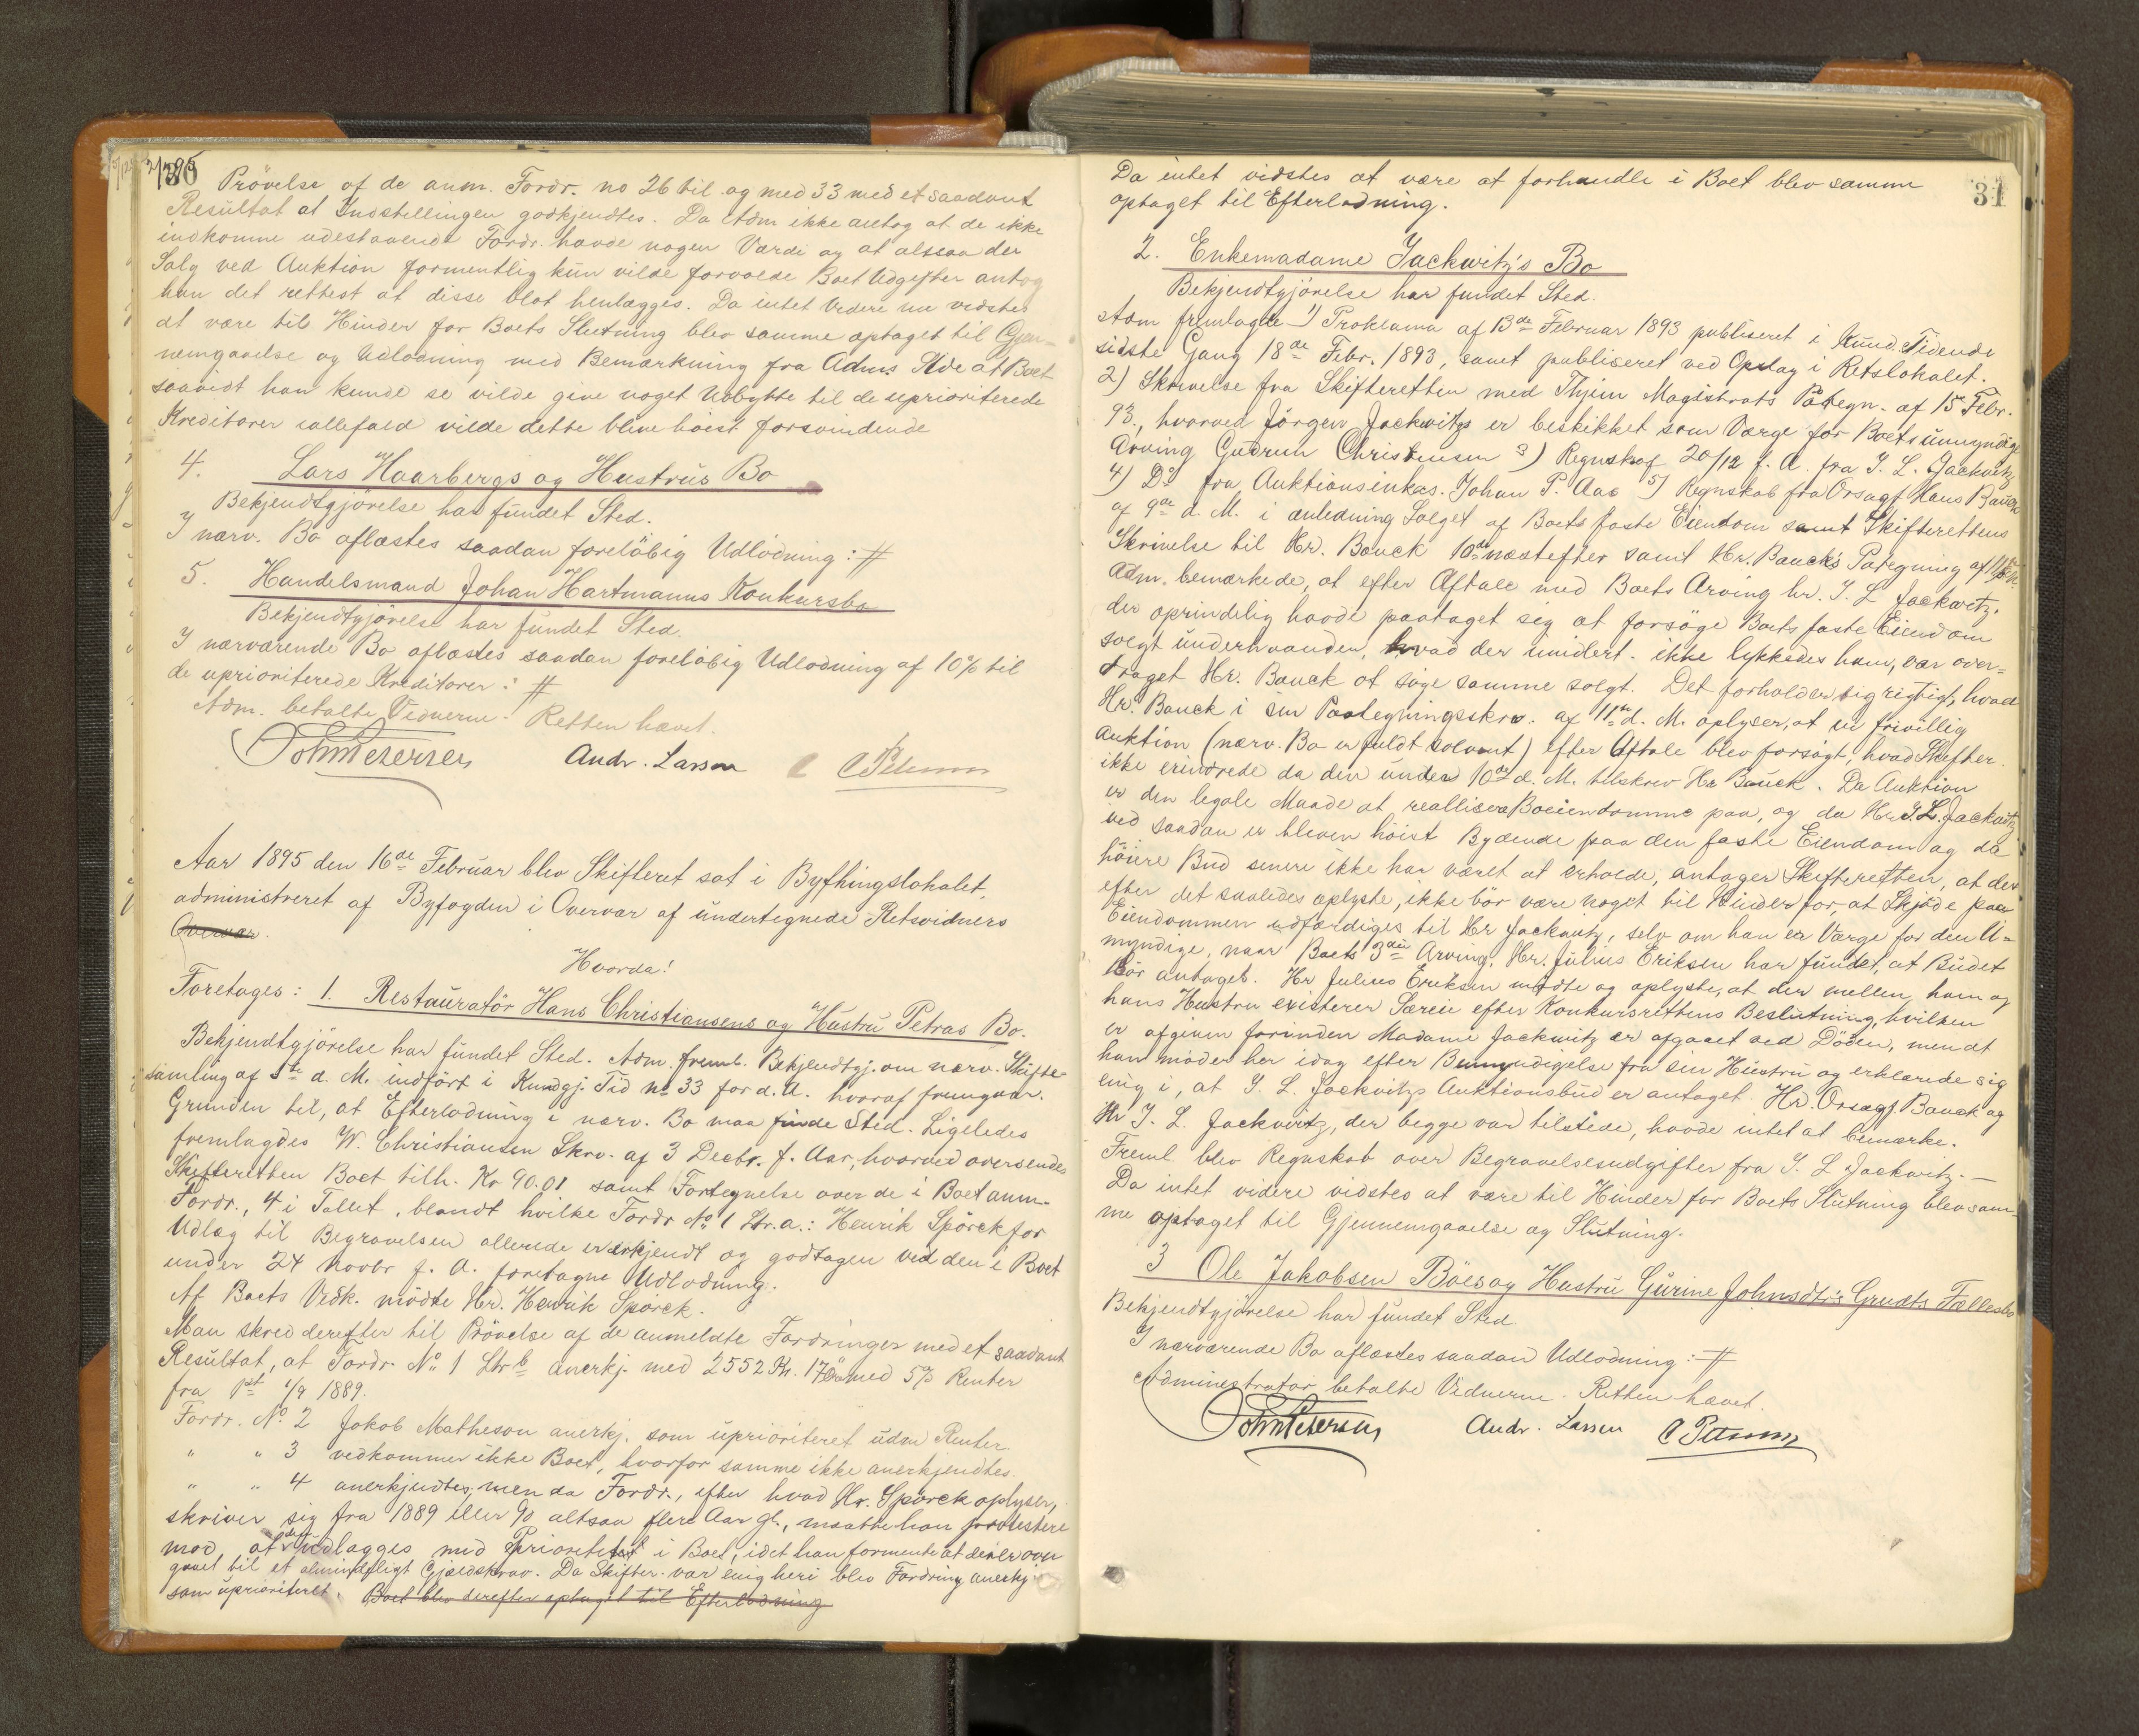 30
Prövelse af de anm. Fordr. no 26 til og med 33 med et saadant
Resultat at Indstillingen godkjendtes. Da Adm ikke antog at de ikke
indkomne udestaaende Fordr. havde nogen Værdi og at alsaa der
Salg ved Auktion formentlig kun vilde forvolde Boet Udgifter antog
han det rettest at disse blot henlægges. Da intet Videre nu vidstes
at være til Hinder for Boets Slutning blev samme optaget til Gjen-
nemgaaelse og Udlodning med Bemærkning fra Adms Side at Boet
saavidt han kunde se vilde give noget Udbytte til de uprioriterede
Kreditorer iallefald vilde dette blive høist forsvindende
4. Lars Haarbergs og Hustrus Bo
Bekjendtgjörelse har fundet Sted.
I nærv. Bo aflæstes saadan foreløbig Udlödning: #
5. Handelsmand Johan Hartmanns Konkursbo
Bekjendtgjörelse har fundet Sted.
I nærværende Bo aflæstes saadan foreløbig Udlodning af 10% til
de uprioriterede Kreditorer: #
Adm. betalte Vidnerne. Retten hævet.
John Petersen Andr. Larsen C Petersen
Aar 1895 den 16de Februar blev Skifteret sat i Bythingslokalet,
administreret af Byfogden i Overvær af undertegnede Retsvidners
Overvær.
Hvorda!
Foretages: 1. Restauratör Hans Christiansens og Hustru Petras Bo.
Bekjendtgjörelse har fundet Sted. Adm. freml. Bekjendtgj. om nærv. Skifte-
samling af 5te d. M. indfört i Kundgj. Tid No 33 for d. A. hvoraf fremgaar.
Grunden til, at Efterlodning i nærv. Bo maa finde Sted. Ligeledes
fremlagdes W. Christiansen Skrv. af 3 Decbr. f. Aar, hvorved oversendes
Skifteretten Boet tilh. Kr 90.01 samt Fortegnelse over de i Boet anm.
Fordr., 4 i Tallet, blandt hvilke Fordr No 1 Ltr. a.: Henrik Spörck for
Udlæg til Begravelsen allerede er erkjendt og godtagen ved den i Boet
under 24 Novbr f. A. foretagne Udlodning.
Af Boets Vedk. mödte Hr. Henrik Spörck.
Man skred derefter til Prövelse af de anmeldte Fordringer med et saadant
Resultat, at Fordr. No 1 Ltr b anerkj. med 2552 Kr. 17 Ö med 5% Renter
fra 1/9 1889.
Fordr. No 2 Jakob Matheson anerkj. som uprioriteret uden Renter.
" " 3 vedkommer ikke Boet, hvorfor samme ikke anerkjendtes.
" " 4 anerkjendtes, men da Fordr., efter hvad Hr. Spörck oplyser,
skriver sig fra 1889 eller 90 altsaa flere Aar gl., maatte han protestere
mod at den udlagges med Prioritetet i Boet, idet han formente at den er over
gaaet til et almindeligt Gjældskrav. Da Skifter. var enig heri blev Fordring anerkj.
som uprioriteret. Boet blev derefter optaget til Efterlodning
31
Da intet vidstes at være at forhandle i Boet blev samme
optaget til Efterlodning.
2. Enkemadame Jackwitz's Bo
Bekjendtgjörelse har fundet Sted.
Adm fremlagde 1) Proklama af 13de Februar 1893 publiseret i Kund. Tidende
sidste Gang 18de Febr. 1893, samt publiseret ved Opslag i Retslokalet.
2) Skrivelse fra Skifteretten med Thjem Magistrats Pategn. af 15 Febr.
93., hvorved Jörgen Jackwitz er beskikket som Værge for Boets umyndige
Arving Gudrun Christensen 3) Regnskaf 20/12 f. A. fra J. L. Jackwitz
4) Do fra Auktionsinkas. Johan P. Aas 5) Regnskab fra Orsagf. Hans Bauck
af 9de d. M. i anledning Salget af Boets faste Eiendom samt Skifterettens
Skrivelse til Hr. Bauck 10de næstefter samt Hr. Bauck's Pategning af 11te
Adm. bemærkede, at efter Aftale med Boets Arving hr. J. L Jackwitz.
der oprindelig havde paataget sig at forsöge Boets faste Eiendom
solgt underhaanden, hvad der imidlert. ikke lykkedes ham, var over-
draget Hr. Bauck at söge samme solgt. Det forholder sig rigtigt, hvad
Hr. Bauck i sin Paategningsskrv. af 11te d. M. oplyser, at en frivillig
Auktion (nærv. Bo er fuldt solvent) efter Aftale blev forsögt, hvad Skifter.
ikke erindrede da den under 10de d. M. tilskrev Hr Bauck. Da Auktion
er den legale Maade at reallisere Boeiendomme paa, og da Hr J. L. Jackwitz
ved saadan er bleven höist Bydende paa den faste Eiendom og da
höiere Bud senere ikke har været at erholde, antager Skifteretten, at der
efter det saaledes oplyste, ikke bör være noget til Hinder for, at Skjöde paa
Eiendommen udfærdiges til Hr Jackwitz, selv om han er Værge for den U-
myndige, naar Boets 3die Arving, Hr. Julius Eriksen har fundet, at Budet
bör antaget. Hr Julius Eriksen mödte og oplyste, at der mellem ham og
hans Hustru existerer Særeie efter Konkursrettens Beslutning, hvilken
er afgiven forinden Madame Jackwitz er afgaaet ved Döden, men at
han möder her idag efter Bemyndigelse fra sin Hustru og erklærede sig
enig i, at J. L. Jackwitz Auktionsbud er antaget. Hr. Orsagf. Bauck og
Hr J. L. Jackwitz, der begge var tilstede, havde intet at bemærke.
Freml. blev Regnskab over Begravelsesudgifter fra J. L Jackwitz. —
Da intet videre vidstes at være til Hinder for Boets Slutning blev sam-
me optaget til Gjennemgaaelse og Slutning.
3 Ole Jakobsen Böes og Hustru Gurine Johnsdtr's Grudts Fællesbo
Bekjendtgjörelse har fundet Sted.
I nærværende Bo aflæstes saadan Udlodning: #
Administrator betalte Vidnerne. Retten hævet.
John Petersen Andr. Larsen C Petersen